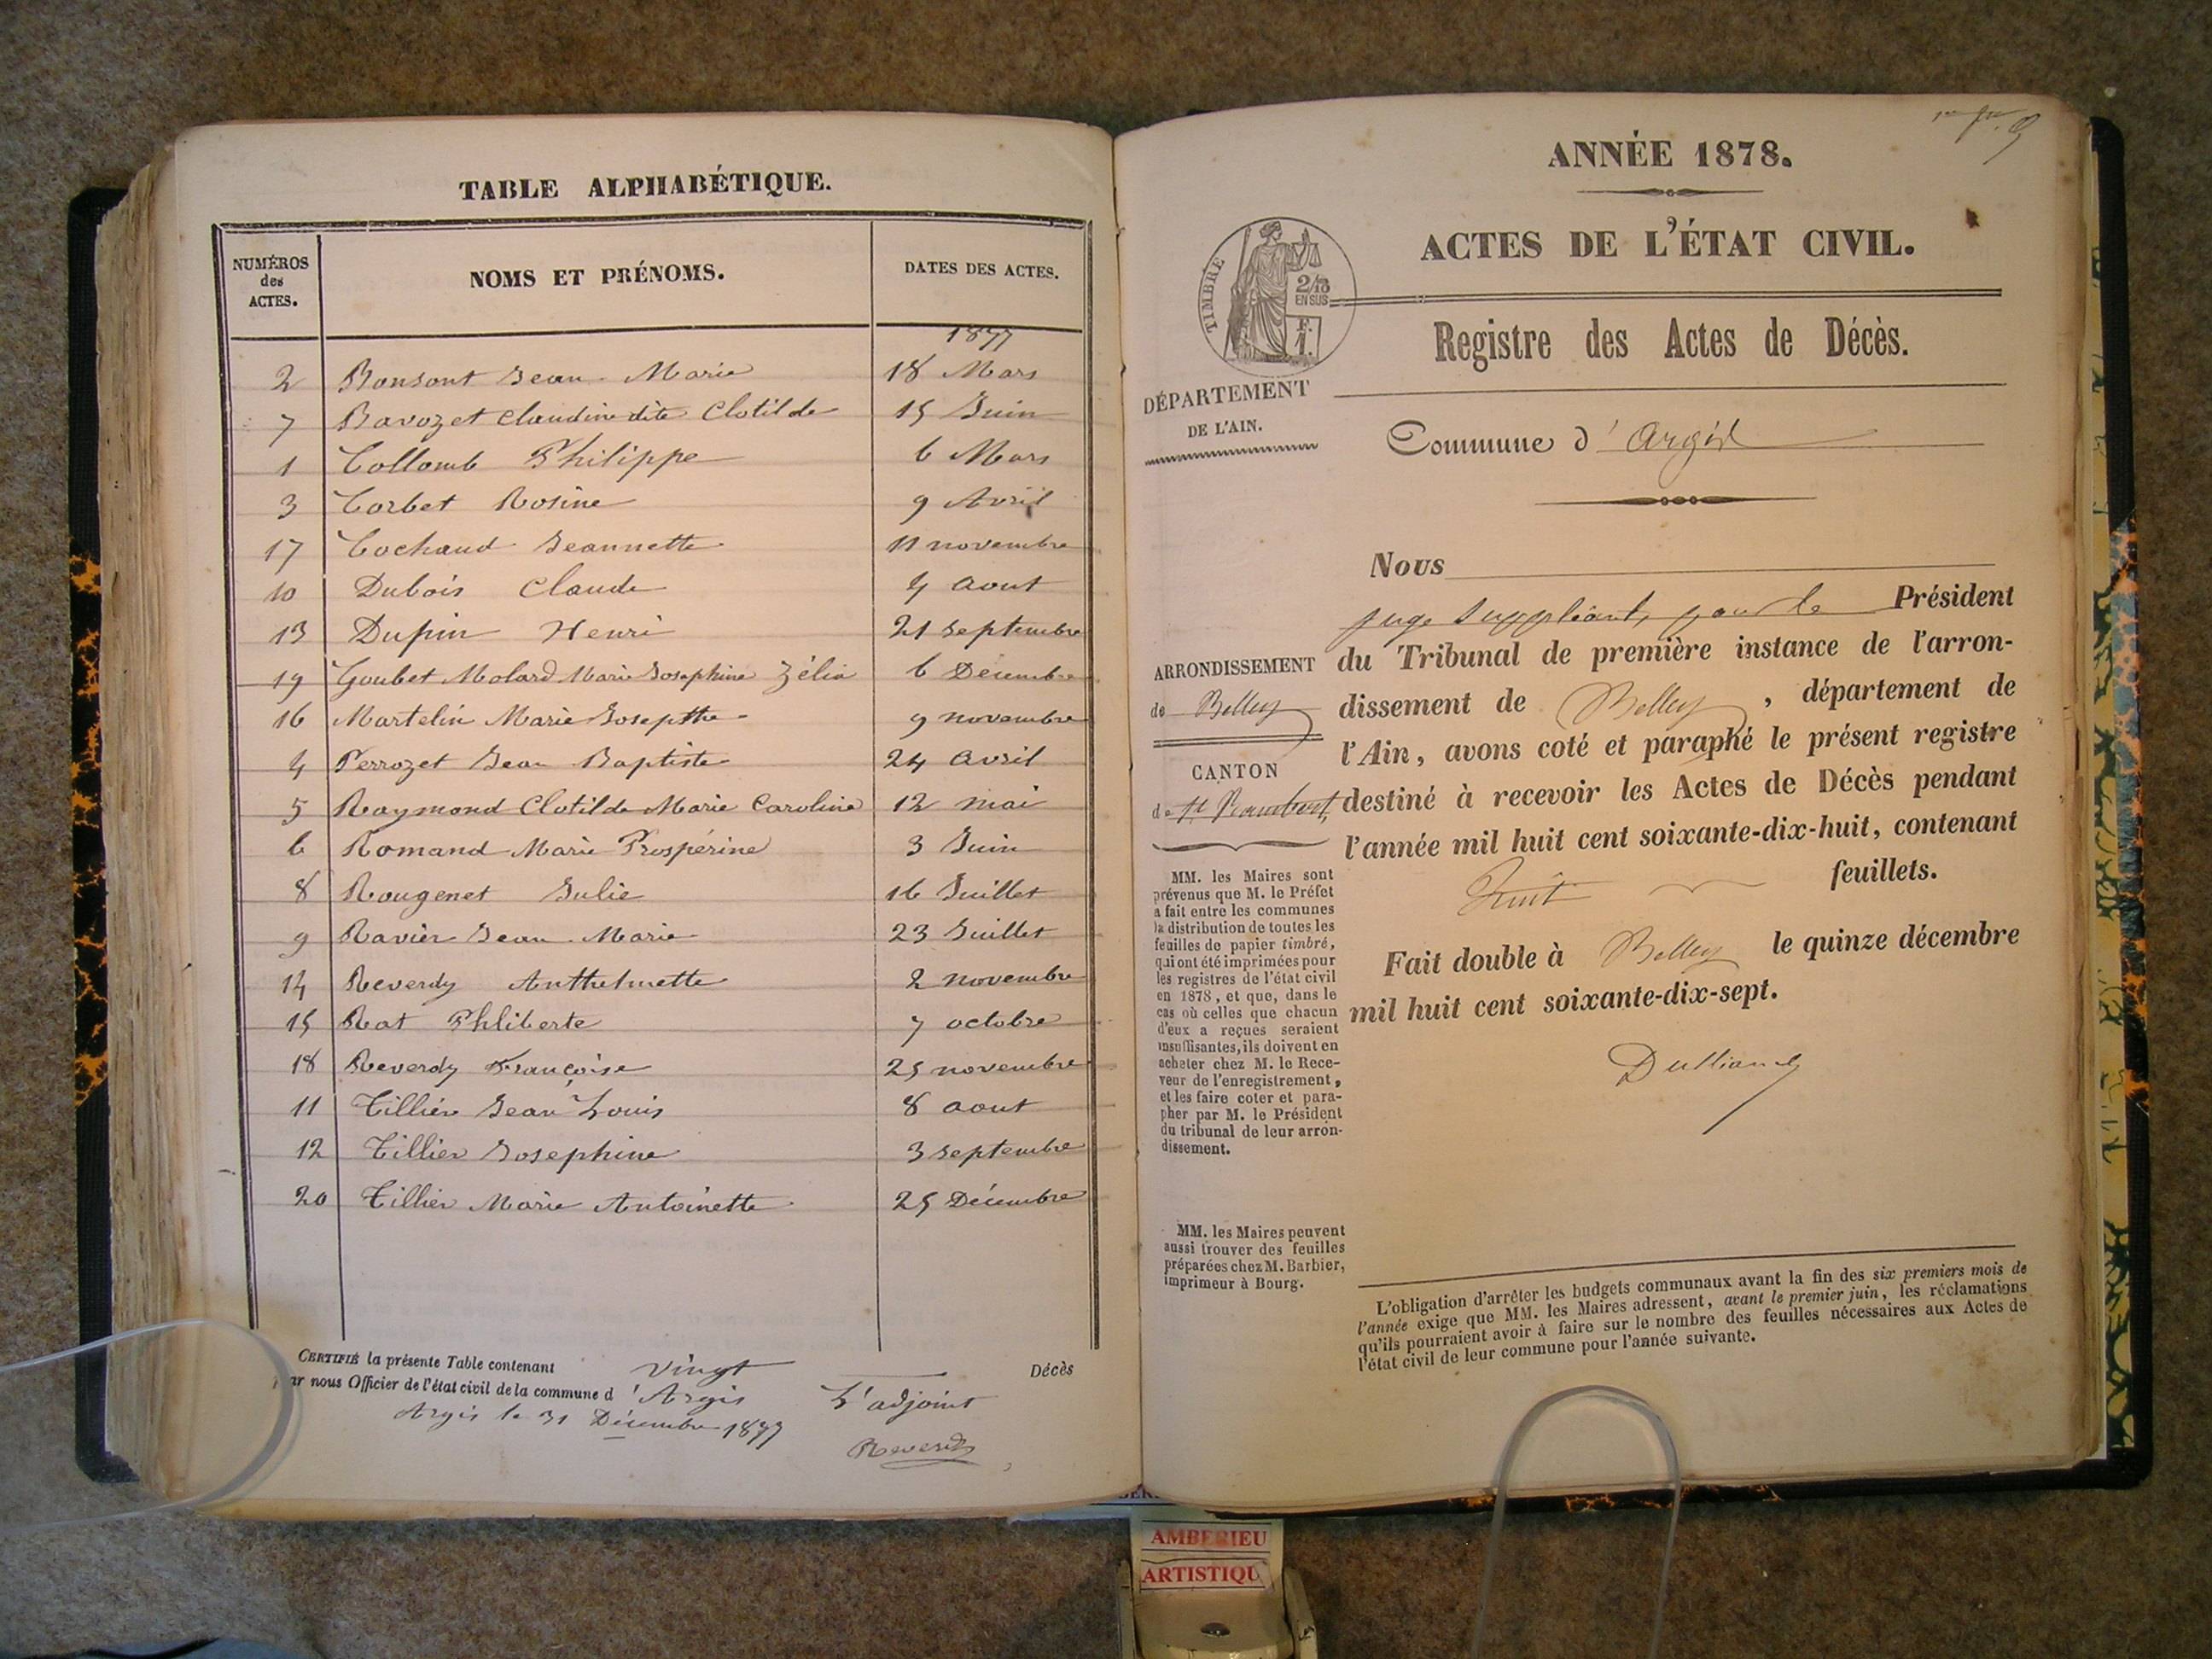 TABLE ALPHABÉTIQUE.
NUMÉROS des ACTES. NOMS ET PRÉNOMS. DATES DES ACTES.
1877
2 Bonsont Jean Marie 18 Mars
7 Bavozet Claudine dite Clotilde 15 Juin
1 Collomb Philippe 6 Mars
3 Corbet Rosine 9 Avril
17 Cochaud Jeannette 11 novembre
10 Dubois Claude 4 aout
13 Dupin Henri 21 septembre
19 Goubet Molard Marie Josephine Zélia 6 Décembre
16 Martelin Marie Josepthe 9 novembre
4 Perrozet Jean Baptiste 24 avril
5 Raymond Clotilde Marie Caroline 12 mai
6 Romand Marie Prospérine 3 Juin
8 Rougenet Julie 16 Juillet
9 Ravier Jean Marie 23 Juillet
14 Reverdy Anthelmette 2 novembre
15 Rat Phliberte 7 octobre
18 Reverdy Françoise 25 novembre
11 Tillier Jean Louis 8 aout
12 Tillier Josephine 3 septembre
20 Tillier Marie Antoinette 25 Décembre
CERTIFIÉ la présente Table contenant vingt Décès
par nous Officier de l'état civil de la commune d'Argis L'adjoint
Argis le 31 Décembre 1877
Reverdy
ANNÉE 1878.
ACTES DE L'ÉTAT CIVIL.
TIMBRE
2/10
EN SUS
F.
1.
Registre des Actes de Décès.
DÉPARTEMENT
DE L'AIN.
Commune d'Argis
Nous
juge suppléant, pour le Président
du Tribunal de première instance de l'arron-
dissement de Belley, département de
l'Ain, avons coté et paraphé le présent registre
destiné à recevoir les Actes de Décès pendant
l'année mil huit cent soixante-dix-huit, contenant
huit feuillets.
Fait double à Belley le quinze décembre
mil huit cent soixante-dix-sept.
ARRONDISSEMENT
de Belley
CANTON
de St Rambert,
MM. les Maires sont
prévenus que M. le Préfet
a fait entre les communes
la distribution de toutes les
feuilles de papier timbré,
qui ont été imprimées pour
les registres de l'état civil
en 1878, et que, dans le
cas où celles que chacun
d'eux a reçues seraient
insuffisantes, ils doivent en
acheter chez M. le Rece-
veur de l'enregistrement,
et les faire coter et para-
pher par M. le Président
du tribunal de leur arron-
dissement.
MM. les Maires peuvent
aussi trouver des feuilles
préparées chez M. Barbier,
imprimeur à Bourg.
L'obligation d'arrêter les budgets communaux avant la fin des six premiers mois de
l'année exige que MM. les Maires adressent, avant le premier juin, les réclamations
qu'ils pourraient avoir à faire sur le nombre des feuilles nécessaires aux Actes de
l'état civil de leur commune pour l'année suivante.
AMBERIEU
ARTISTIQU